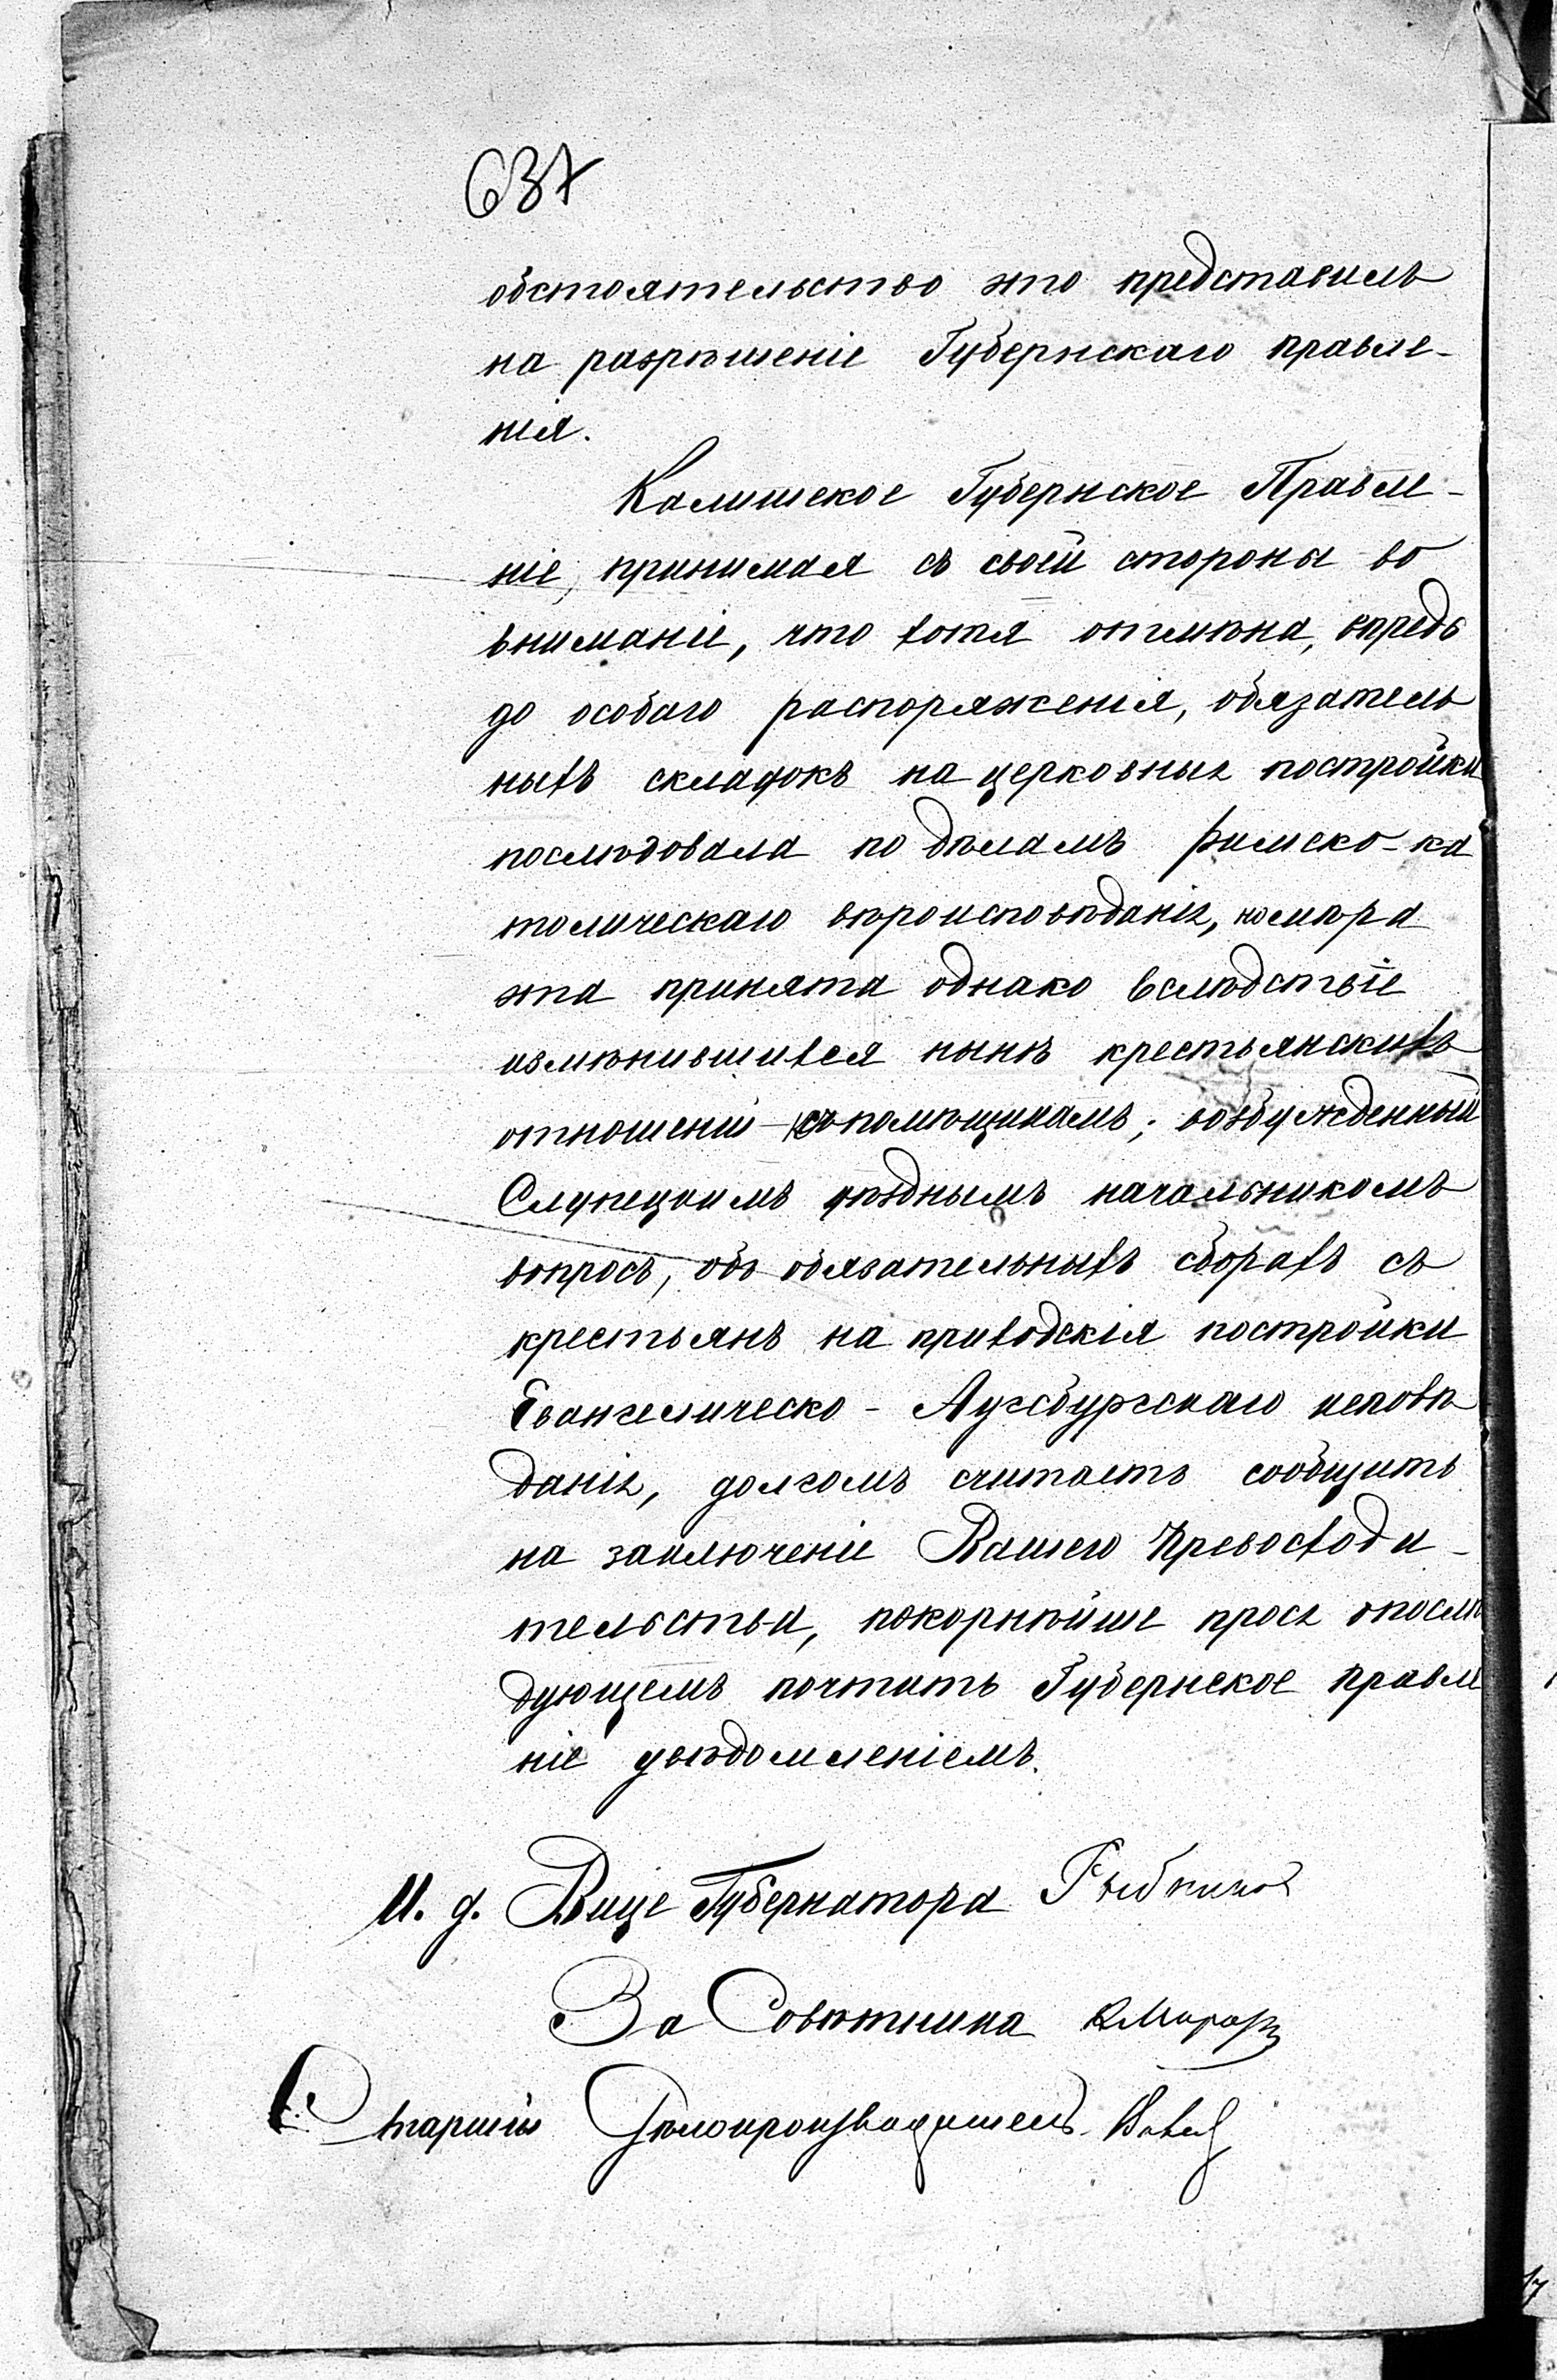 637
обстоятельство это представилъ
на разрѣшеніе Губернскаго правле-
нія.
Калишское Губернское Правле-
ніе, принимая съ своей стороны во
вниманіе, что хотя отмѣна, впредь
до особаго распоряженія, обязатель
ныхъ складокъ на церковныя постройки
послѣдовала по дѣламъ римско-ка
толическаго вѣроисповѣданія, но мѣра
эта принята однако вслѣдствіе
измѣнившихся нынѣ крестьянскихъ
отношеній къ помѣщикамъ; возбужденный
Слупецкимъ уѣзднымъ начальникомъ
вопросъ, объ обязательныхъ сборахъ съ
крестьянъ на приходскія постройки
Евангелическо-Аугсбургскаго исповѣ
данія, долгомъ считаетъ сообщить
на заключеніе Вашего Превосходи-
тельства, покорнѣйше прося о послѣ
дующемъ почтить Губернское правле
ніе увѣдомленіемъ.
И. д. Вице Губернатора Рыбников
За Совѣтника
Старшій Дѣлопроизводитель